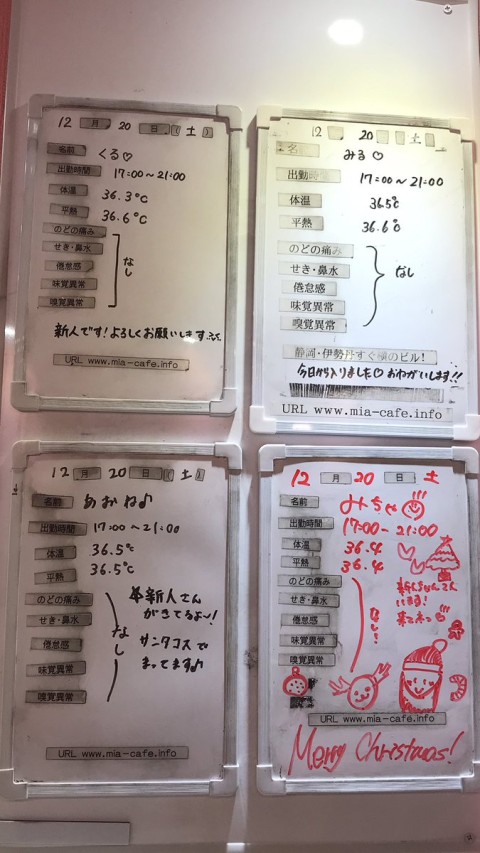 12 月 20 日 (土)
名前 くる♡
出勤時間 17:00〜21:00
体温 36.3℃
平熱 36.6℃
のどの痛み
せき・鼻水
倦怠感 なし
味覚異常
嗅覚異常
新人です!よろしくお願いします
URL www.mia-cafe.info
12 20 土
名 みる♡
出勤時間 17:00〜21:00
体温 36.5℃
平熱 36.6℃
のどの痛み
せき・鼻水
倦怠感 なし
味覚異常
嗅覚異常
静岡・伊勢丹すぐ横のビル!
今日から入りました♡おねがいします!!
URL www.mia-cafe.info
12 月 20 日 (土)
名前 あおね♪
出勤時間 17:00〜21:00
体温 36.5℃
平熱 36.5℃
のどの痛み
せき・鼻水
倦怠感 なし
味覚異常
嗅覚異常
新人さん
がきてるよ〜!
サンタコスで
まってます♪
URL www.mia-cafe.info
12 月 20 日 土
名前 みちゃ
出勤時間 17:00-21:00
体温 36.4
平熱 36.4
のどの痛み
せき・鼻水
倦怠感 なし!
味覚異常
嗅覚異常
います!
URL www.mia-cafe.info
Merry Christmas!